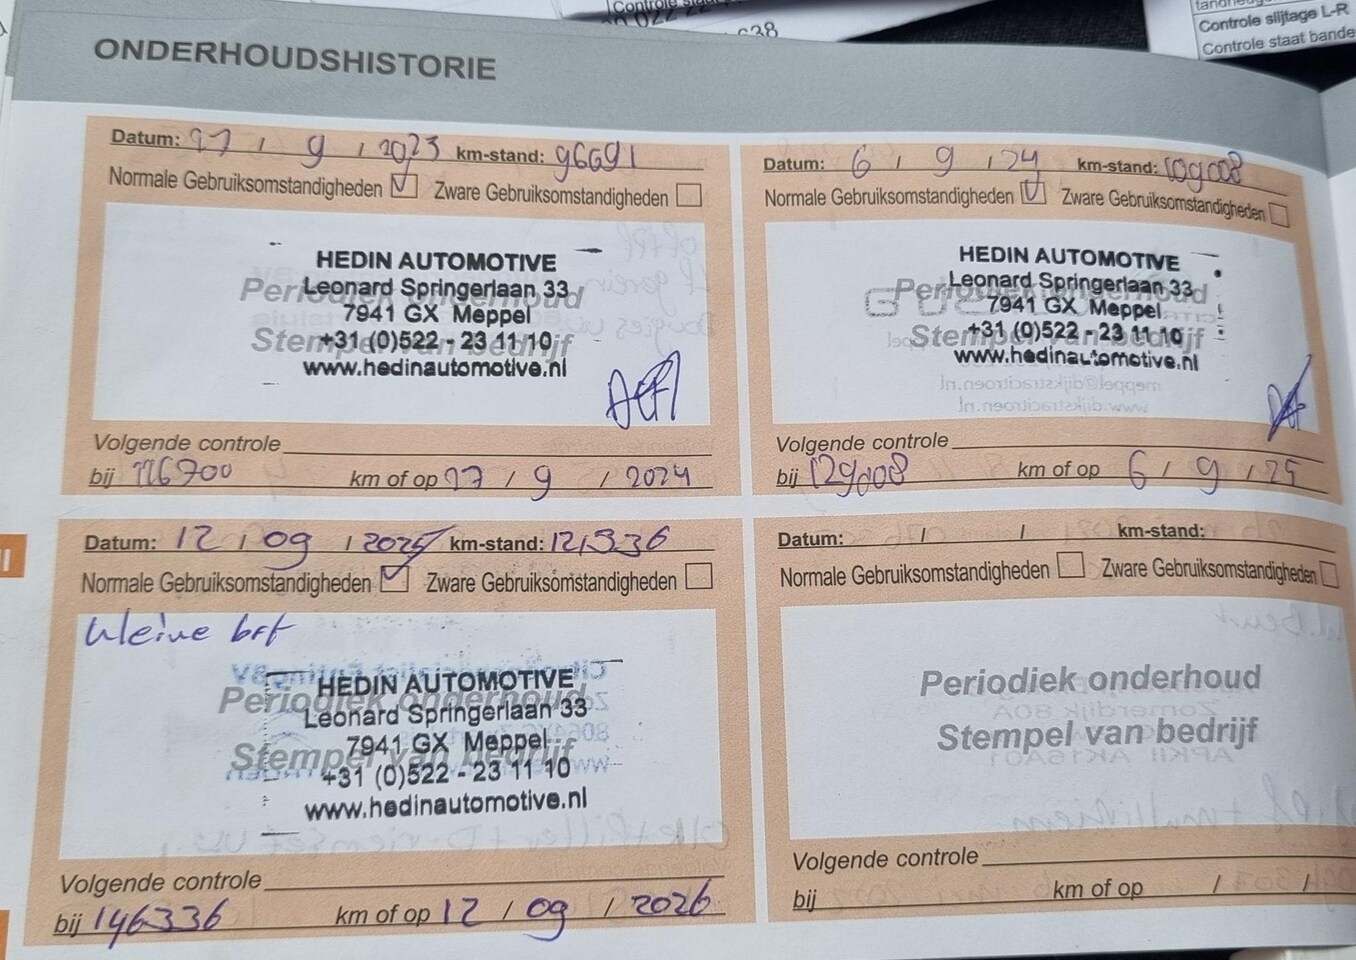 Controle sta
Controle slijtage L-R
Controle staat bande
ONDERHOUDSHISTORIE
Datum: 27 / 9 / 2023 km-stand: 96691
Normale Gebruiksomstandigheden Zware Gebruiksomstandigheden
HEDIN AUTOMOTIVE
Leonard Springerlaan 33
Periodiek onderhoud
7941 GX Meppel
Stempel van bedrijf
+31 (0)522 - 23 11 10
www.hedinautomotive.nl
Volgende controle
bij 116700 km of op 27 / 9 / 2024
Datum: 6 / 9 / 24 km-stand: 109008
Normale Gebruiksomstandigheden Zware Gebruiksomstandigheden
HEDIN AUTOMOTIVE
Leonard Springerlaan 33
Periodiek onderhoud
7941 GX Meppel
Stempel van bedrijf
+31 (0)522 - 23 11 10
www.hedinautomotive.nl
Volgende controle
bij 129008 km of op 6 / 9 / 25
Datum: 12 / 09 / 2025 km-stand: 121336
Normale Gebruiksomstandigheden Zware Gebruiksomstandigheden
kleine brt
HEDIN AUTOMOTIVE
Periodiek onderhoud
Leonard Springerlaan 33
7941 GX Meppel
Stempel van bedrijf
+31 (0)522 - 23 11 10
www.hedinautomotive.nl
Volgende controle
bij 146336 km of op 12 / 09 / 2026
Datum: / / km-stand:
Normale Gebruiksomstandigheden Zware Gebruiksomstandigheden
Periodiek onderhoud
Stempel van bedrijf
Volgende controle
bij km of op / /